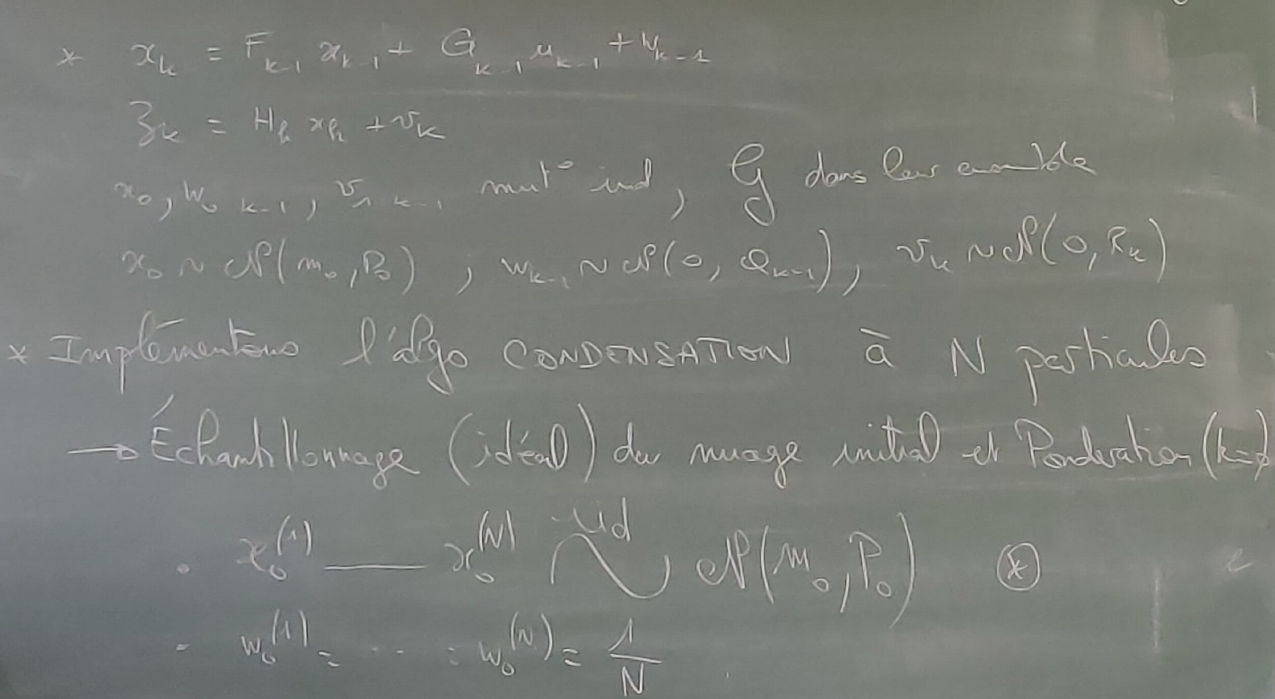 * x_k = F_{k-1} x_{k-1} + G_{k-1} u_{k-1} + w_{k-1}
z_k = H_k x_k + v_k
x_0, w_{0 k-1}, v_{1 k-1} mut^t ind, G dans leur ensemble
x_0 ~ N(m_0, P_0) ; w_{k-1} ~ N(0, Q_{k-1}), v_k ~ N(0, R_k)
* Implémentons l'algo CONDENSATION à N particules
→ Échantillonnage (idéal) du nuage initial et Pondération (k=0)
• x_0^{(1)} — x_0^{(N)} iid ~ N(m_0, P_0) ⊛
• w_0^{(1)} = ... = w_0^{(N)} = 1/N